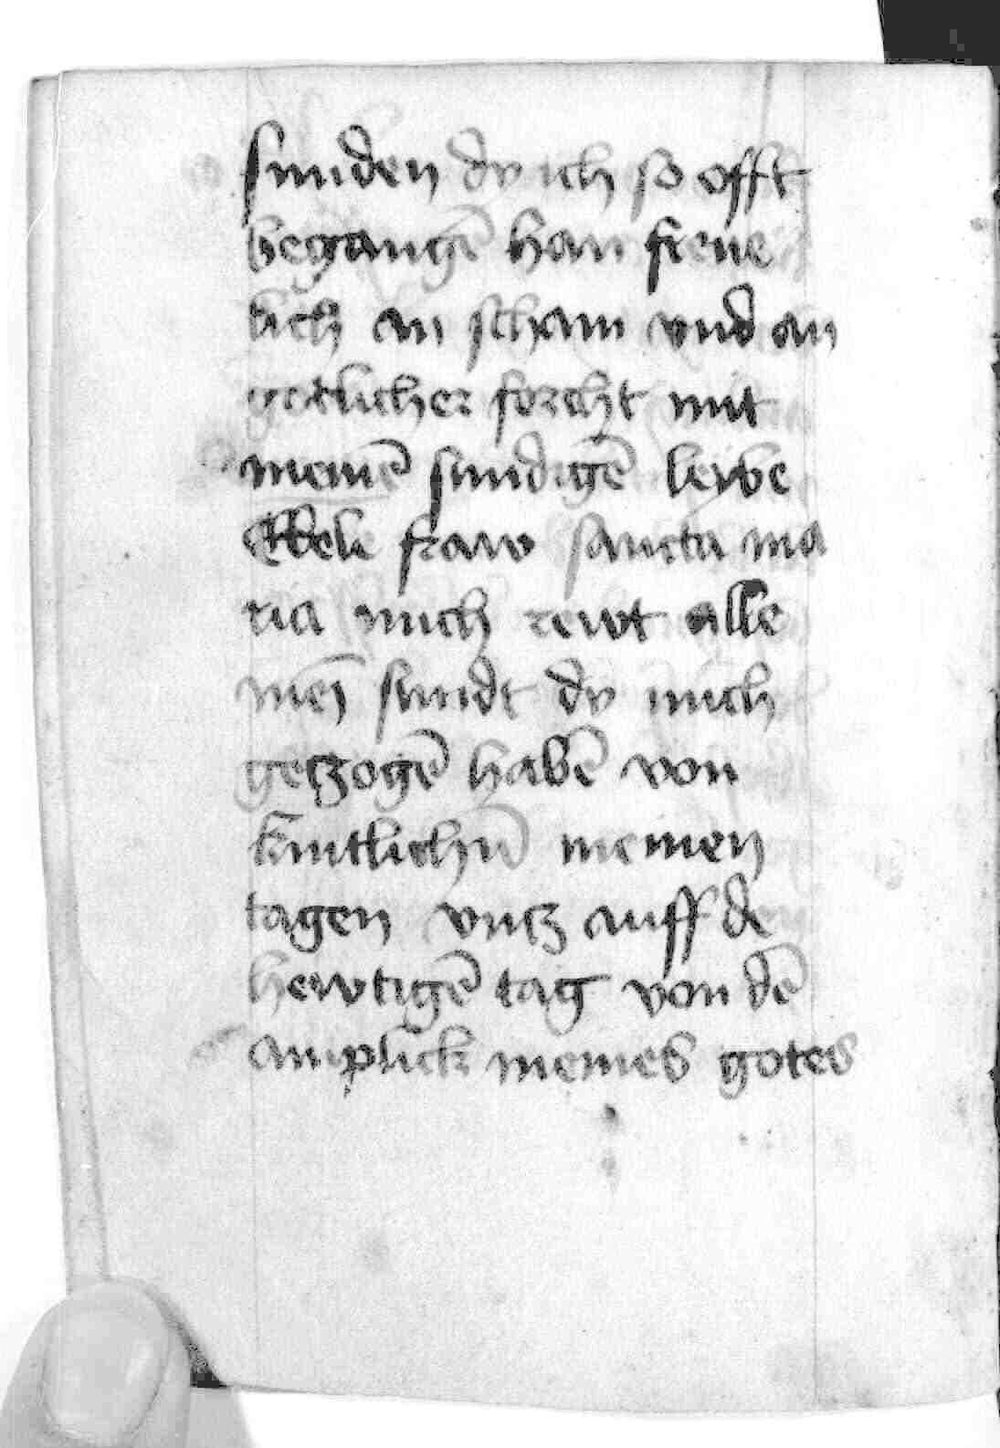 sunden dy ich so offt
begangē han freue
lich an scham vnd an
gotlicher forcht mit
meinē sundigē leybe
Edele fraw sancta ma
ria mich rewt alle
mei͞ sundt dy mich
getzogē habē von
kintlichn̄ meinen
tagen vntz auff de
hewtigē tag von dē
anplick meines gotes